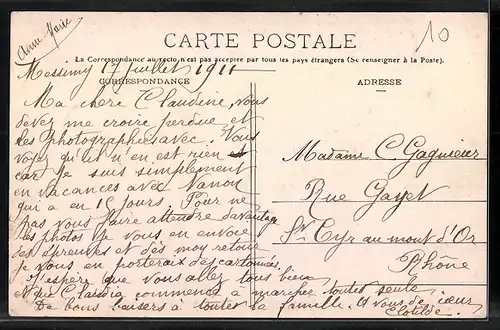 Anne Marie
10
CARTE POSTALE
La Correspondance au recto n'est pas acceptée par tous les pays étrangers (Se renseigner à la Poste).
CORRESPONDANCE
ADRESSE
Messimy 17 juillet 1911
Ma chere Claudine, vous
devez me croire perdue et
les photographies avec. Vous
voyez qu'il n'en est rien et
car je suis simplement
en vacances avec Nanon
qui a eu 15 jours. Pour ne
pas vous faire attendre davantage
les photos je vous en envoie
des épreuves et dès moy retour
je vous en porterais des cartonnées.
J'espère que vous allez tous bien
et que Claudia commence à marcher toutes seule.
De bons baisers à toutes la famille. A vous de cœur
Clotilde.
Madame C Gagnieur
Rue Gayet
St Cyr au mont d'Or
Rhône